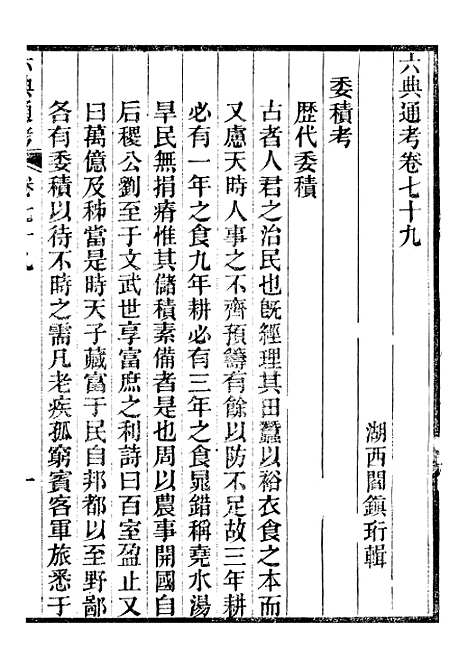 六典通考卷七十九
湖西閻鎮珩輯
委積考
歷代委積
古者人君之治民也旣經理其田蠶以裕衣食之本而
又慮天時人事之不齊預籌有餘以防不足故三年耕
必有一年之食九年耕必有三年之食鼂錯稱堯水湯
旱民無捐瘠惟其儲積素備者是也周以農事開國自
后稷公劉至于文武世享富庶之利詩曰百室盈止又
曰萬億及秭當是時天子藏富于民自邦都以至野鄙
各有委積以待不時之需凡老疾孤窮賓客軍旅悉于
六典通考
卷七十九
一